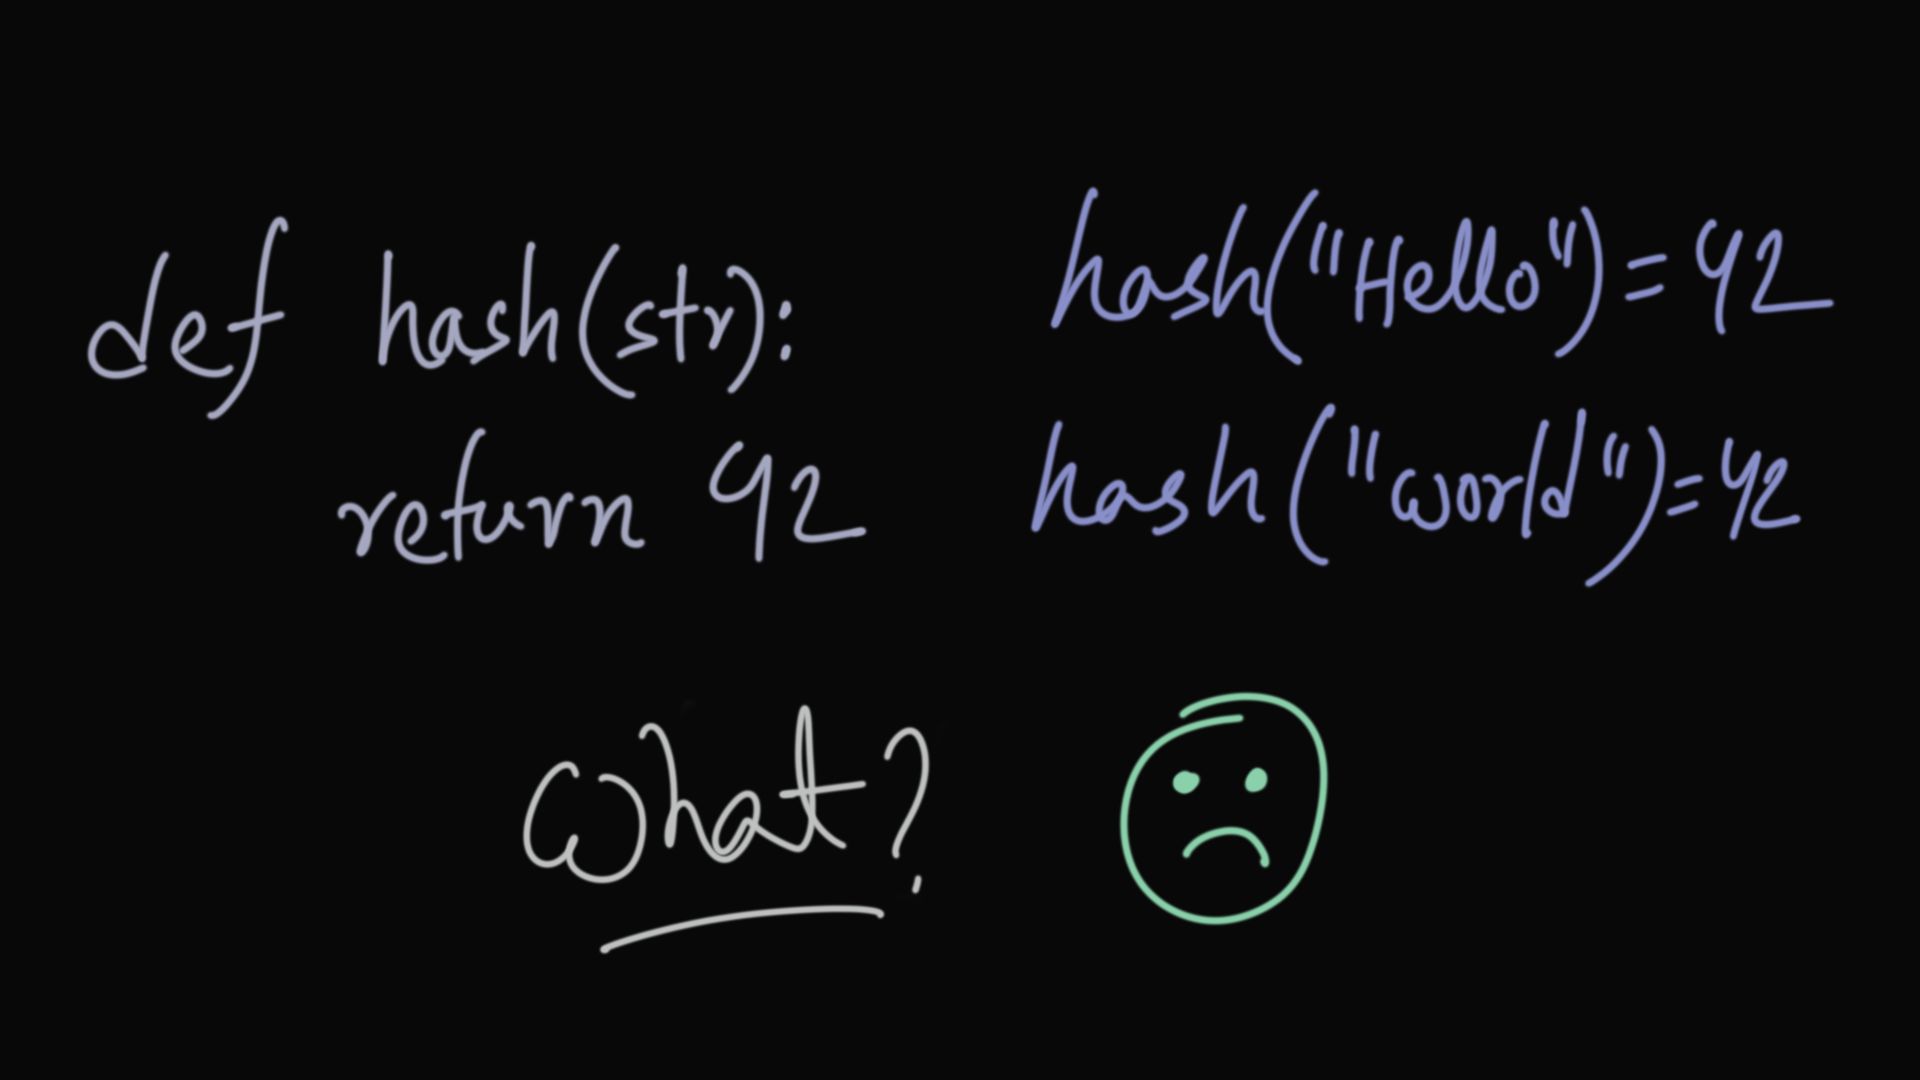 def hash(str):
return 42
hash("Hello") = 42
hash("world") = 42
What?